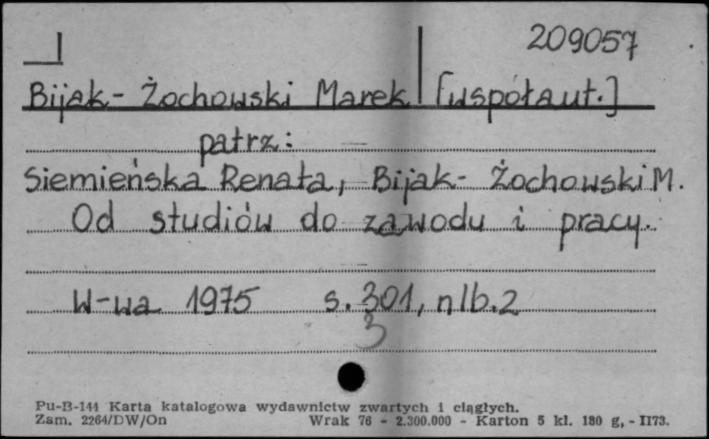 209057
Bijak-Żochowski Marek [współaut.]
patrz:
Siemieńska Renata, Bijak-Żochowski M.
Od studiów do zawodu i pracy.
W-wa 1975 s. 301, nlb. 2
3
Pu-B-144 Karta katalogowa wydawnictw zwartych i ciągłych.
Zam. 2264/DW/On Wrak 76 - 2.300.000 - Karton 5 kl. 180 g, - II73.